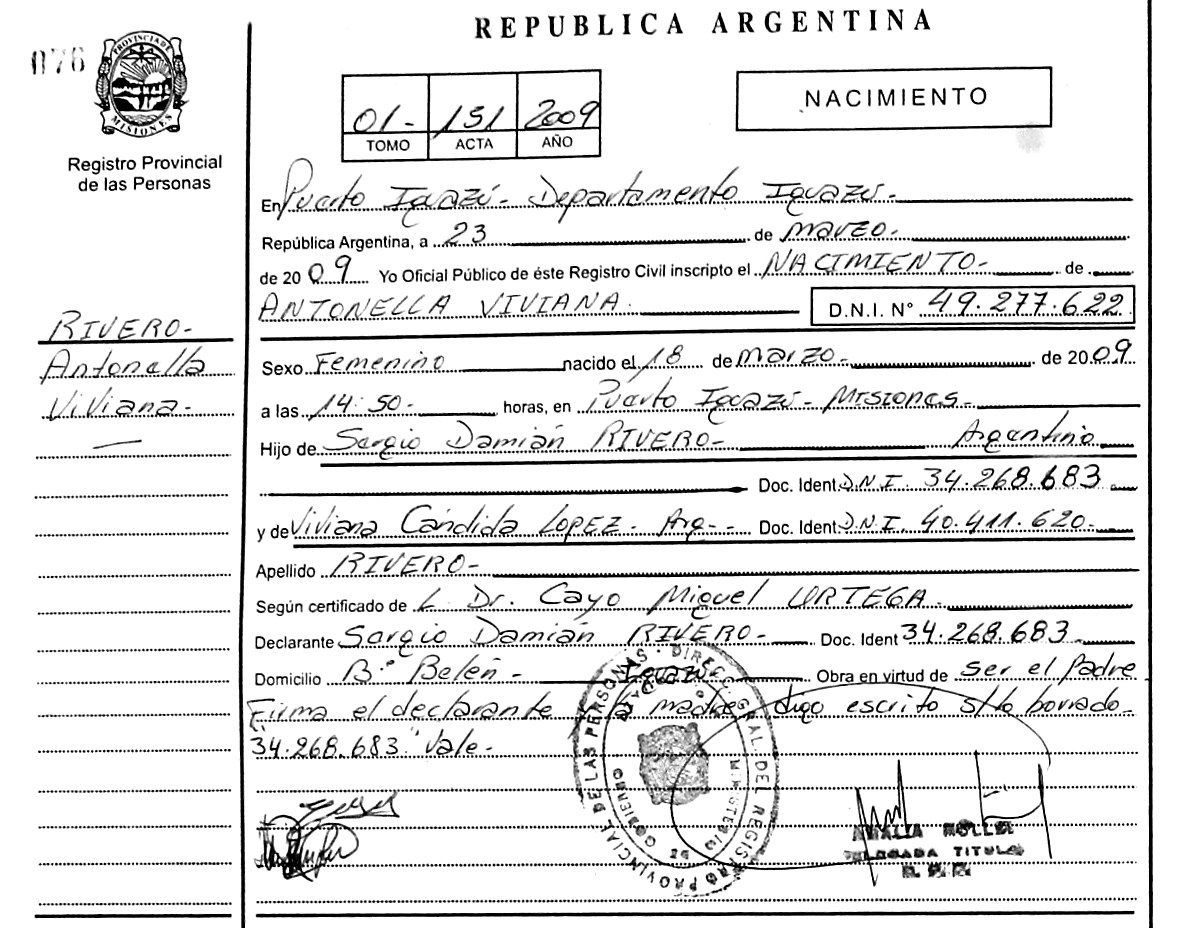 REPUBLICA ARGENTINA
076
PROVINCIA DE
MISIONES
Registro Provincial
de las Personas
01- 151 2009
TOMO ACTA AÑO
NACIMIENTO
En Puerto Iguazú - Departamento Iguazú -
República Argentina, a 23 de marzo -
de 2009 Yo Oficial Público de éste Registro Civil inscripto el NACIMIENTO- de
ANTONELLA VIVIANA. D.N.I. N° 49.277.622
RIVERO-
Antonella
Viviana-
Sexo Femenino nacido el 18 de marzo - de 2009
a las 14:50- horas, en Puerto Iguazú - Misiones -
Hijo de Sergio Damián RIVERO- Argentino
Doc. Ident D.N.I. 34.268.683
y de Viviana Cándida LOPEZ - Arg- - Doc. Ident D.N.I. 40.411.620-
Apellido RIVERO-
Según certificado de L Dr. Cayo Miguel URTEGA
Declarante Sergio Damián RIVERO- Doc. Ident 34.268.683
Domicilio B° Belén - Iguazú - Obra en virtud de ser el Padre
Firma el declarante y la madre digo escrito s/lo borrado-
34.268.683 "Vale-
DIREC. GRAL. DEL REGISTRO PROVINCIAL DE LAS PERSONAS
MINISTERIO GOBIERNO
26
TITULAR